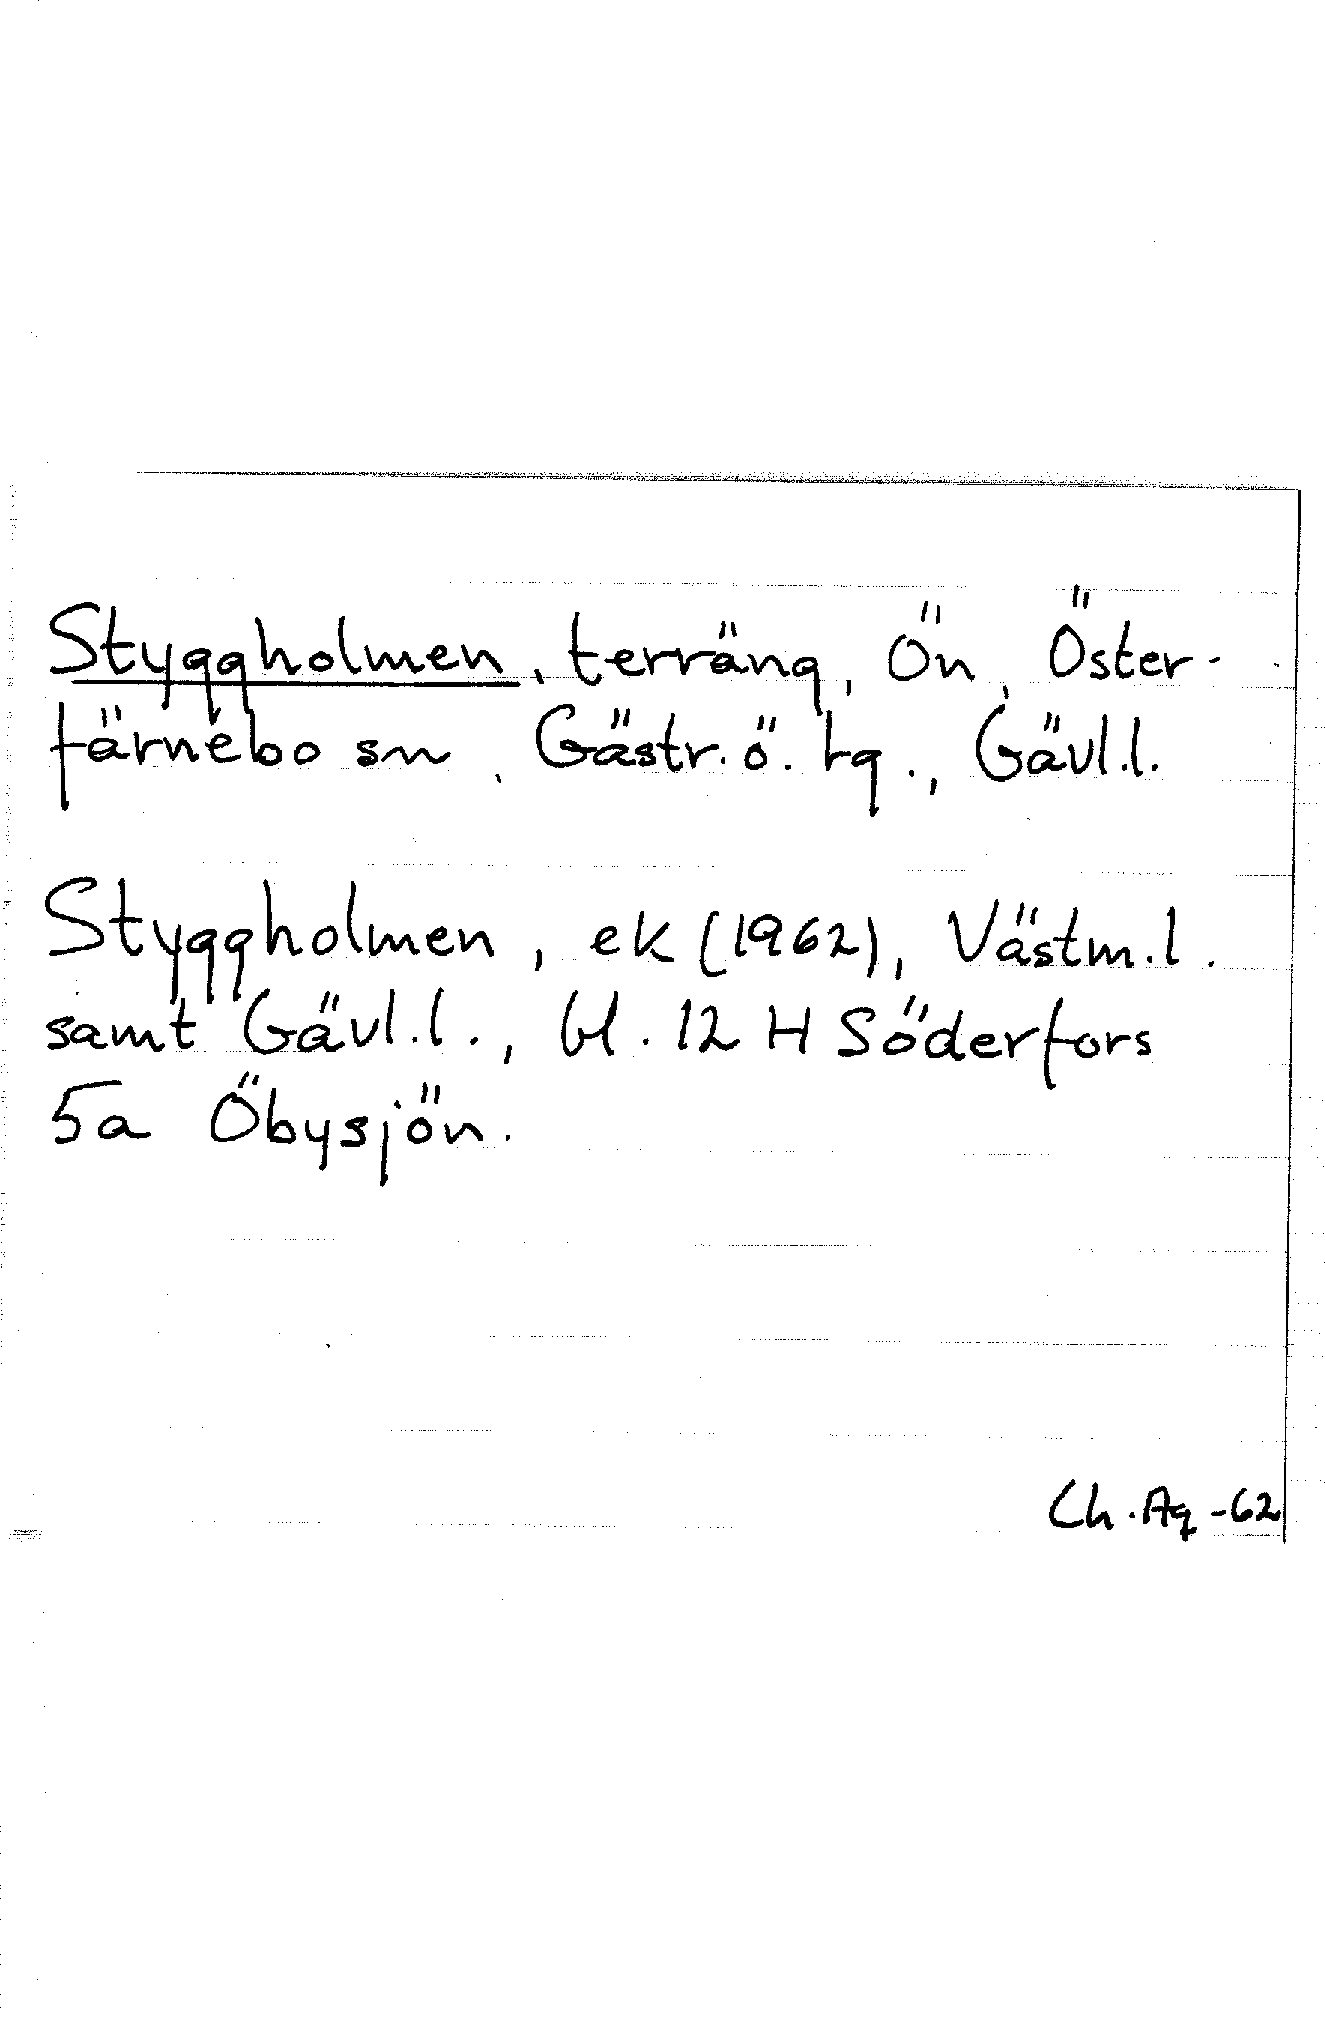 Styggholmen, terräng, Ön, Öster-
färnebo sn, Gästr. ö. tg., Gävl.l.
Styggholmen, ek (1962), Västm.l.
samt Gävl.l., bl. 12 H Söderfors
5a Öbysjön.
Ch. Ag -62